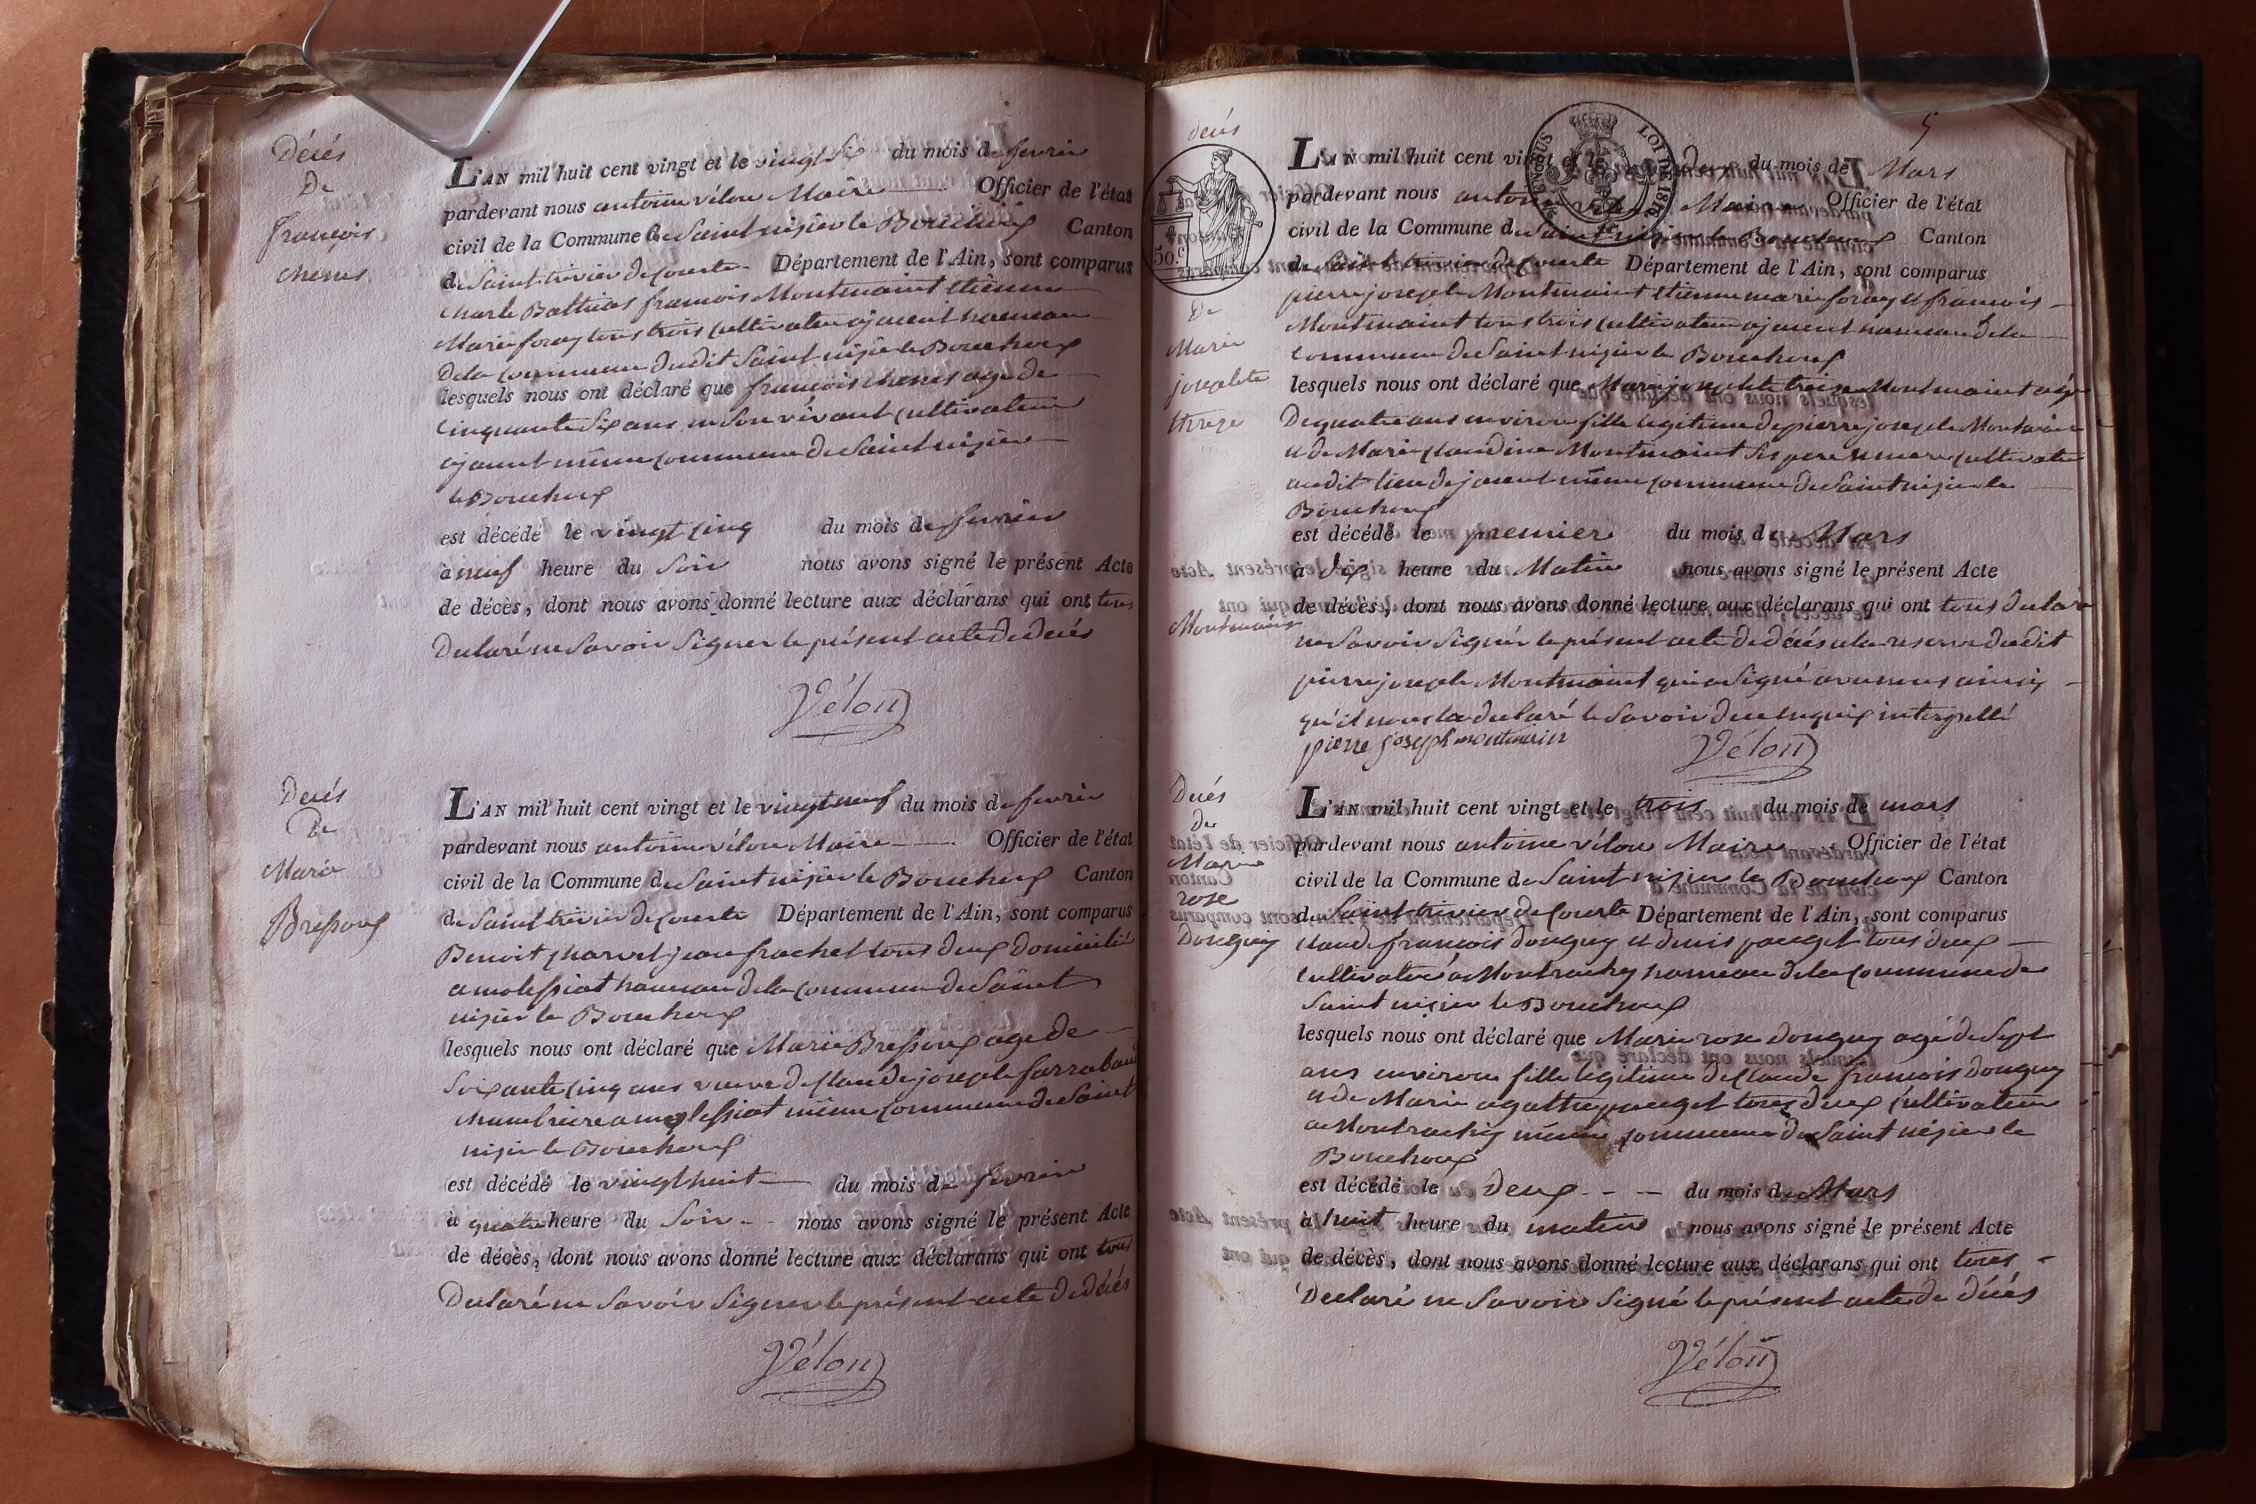 Décés
De
françois
chenes
L'AN mil huit cent vingt et le vingt six du mois de fevrier
pardevant nous antoine vélon Maire Officier de l'état
civil de la Commune de Saint nizier le Bouchoux Canton
de Saint trivier de courte Département de l'Ain, sont comparus
charle Bathias françois Montmaint etienne
Marie foray tous trois cultivateur ajacent hameau
De la commune dudit Saint nizier le Bouchoux
lesquels nous ont déclaré que françois chenes age de
cinquante Six ans en Son vivant cultivateur
ajacent même commune de Saint nizier
le Bouchoux
est décédé le vingt cinq du mois de fevrier
à neuf heure du Soir nous avons signé le présent Acte
de décès, dont nous avons donné lecture aux déclarans qui ont tous
Declaré ne Savoir Signer le présent acte de décés
Vélon
Decés
De
Marie
Bressoux
L'AN mil huit cent vingt et le vingt neuf du mois de fevrier
pardevant nous antoine vélon Maire Officier de l'état
civil de la Commune de Saint nizier le Bouchoux Canton
de Saint trivier de courte Département de l'Ain, sont comparus
Benoit charvet jean frachet tous deux domicilié
a molessiat hameau de la commune de Saint
nizier le Bouchoux
lesquels nous ont déclaré que Marie Bressoux age de
Soixante cinq ans veuve de claude joseph farraband
chambriere a molessiat même commune de Saint
nizier le Bouchoux
est décédé le vingt huit du mois de fevrier
à quatre heure du Soir nous avons signé le présent Acte
de décès, dont nous avons donné lecture aux déclarans qui ont tous
Declaré ne Savoir Signer le présent acte de décés
Vélon
5
decés
De
Marie
josephte
therese
Montmain
50.c
LOI DE 1816
L'AN mil huit cent vingt et le deux du mois de Mars
pardevant nous antoine vélon Maire Officier de l'état
civil de la Commune de Saint nizier le Bouchoux Canton
de Saint trivier de Courte Département de l'Ain, sont comparus
pierre joseph Montmaint etienne marie foray et françois
Montmaint tous trois cultivateur ajacent hameau de la
commune de Saint nizier le Bouchoux
lesquels nous ont déclaré que Marie josephte therese Montmaint age
De quatre ans environ fille legitime de pierre joseph Montmain
et de Marie claudine Montmaint Ses pere et mere cultivate
audit lieu de jacent même commune de Saint nizier le
Bouchoux
est décédé le premier du mois de Mars
à dix heure du Matin nous avons signé le présent Acte
de décès, dont nous avons donné lecture aux déclarans qui ont tous declaré
ne Savoir Signér le présent acte de décés a la reserve dudit
pierre joseph Montmaint qui a Signé avec nous ainsy
qu'il nous la declaré le Savoir de ce enquis interpellé
pierre Joseph montmain
Vélon
Decés
de
Marie
rose
Donguy
L'AN mil huit cent vingt et le trois du mois de mars
pardevant nous antoine vélon Maire Officier de l'état
civil de la Commune de Saint nizier le Bouchoux Canton
de Saint trivier de Courte Département de l'Ain, sont comparus
claude françois donguy et denis pauget tous deux
cultivateur a Montrachy hameau de la commune de
Saint nizier le Bouchoux
lesquels nous ont déclaré que Marie rose donguy age de Sept
ans environ fille legitime de Claude françois donguy
et de Marie agathe pauget tous deux cultivateur
a Montrachy même commune de Saint nizier le
Bouchoux
est décédé le deux du mois de Mars
à huit heure du matin nous avons signé le présent Acte
de décès, dont nous avons donné lecture aux déclarans qui ont tous
Declaré ne Savoir Signé le présent acte de décés
Vélon